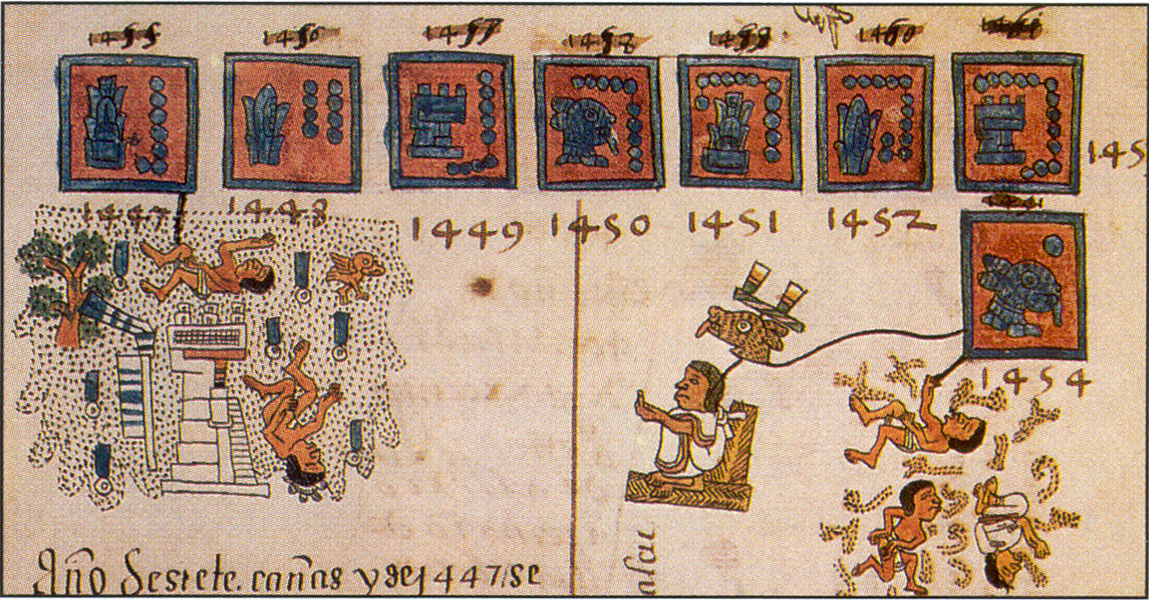 1455 1457 1458 1460
145
1447 1448 1449 1450 1451 1452
1454
Año de siete. cañas y de 1447. se